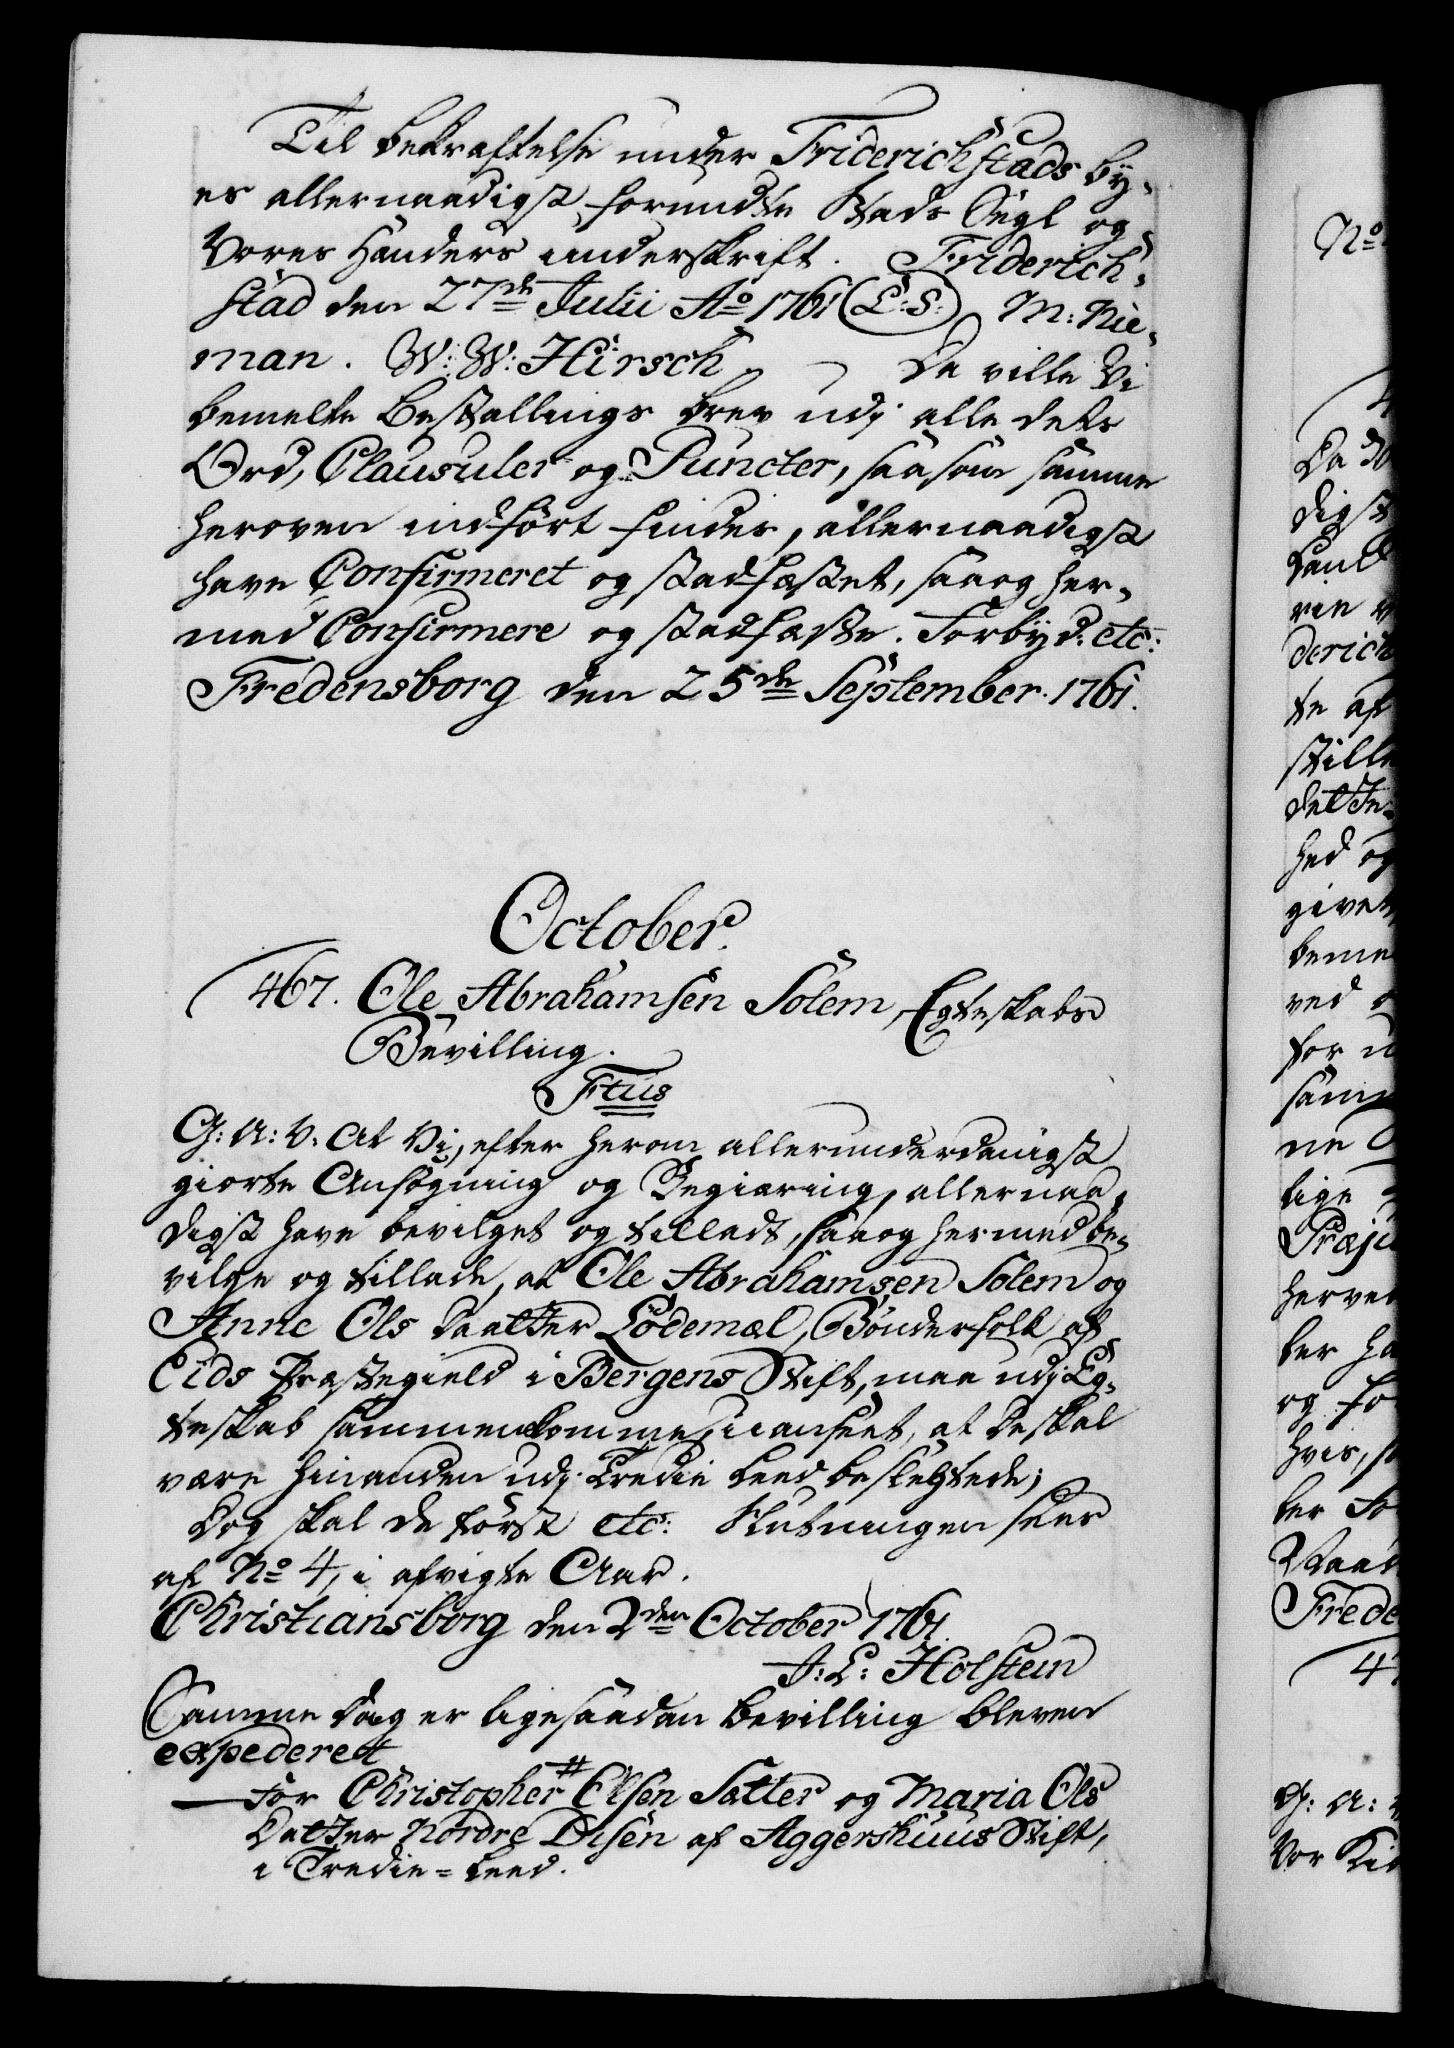 Til bekræftelse under Friderichstads By-
es allernaadigst forundte Stads Segl og
Vores Hænders underskrift. Friderich-
stad den 27de Julii Ao 1761 (L.S:) M: Nie-
man. W: W: Hirsch - - Da ville Vi
bemelte Bestallings brev udj alle dets
Ord, Clausuler og Puncter, saasom samme
heroven indført findes, allernaadigst
have Confirmeret og stadfæstet, saa og her-
med Confirmere og stadfæste. Forbyd: etc:
Fredensborg den 25de September 1761.
October.
467. Ole Abrahamsen Solem, Egteskabs
Bevilling.
Ftus
G: A: V: At Vi, efter herom allerunderdanigst
giorte Ansøgning og Begiæring, allernaa-
digst have bevilget og tilladt, saa og hermed be-
vilge og tillade, at Ole Abrahamsen Solem og
Anne Ols Daatter Lødemæl, Bønderfolk af
Eids Præstegield i Bergens Stift, maa udj Eg-
teskab sammenkomme, uanseet, at De skal
være hinanden udj Tredie Leed beslegtede;
Dog skal de først etc: Slutningen sees
af No 4, i afvigte Aar.
Christiansborg den 2den October 1761.
J: L: Holstein
Samme Dag er ligesaadan Bevilling bleven
expederet
— For Christopher # Olsen Sætter og Maria Ols
Datter Nordre Disen af Aggershuus Stift,
i Tredie = Leed.
No